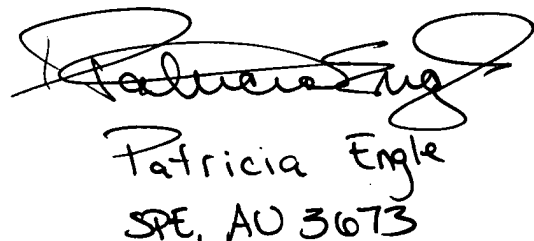 Patricia Engle
Patricia Engle
SPE, AU 3673